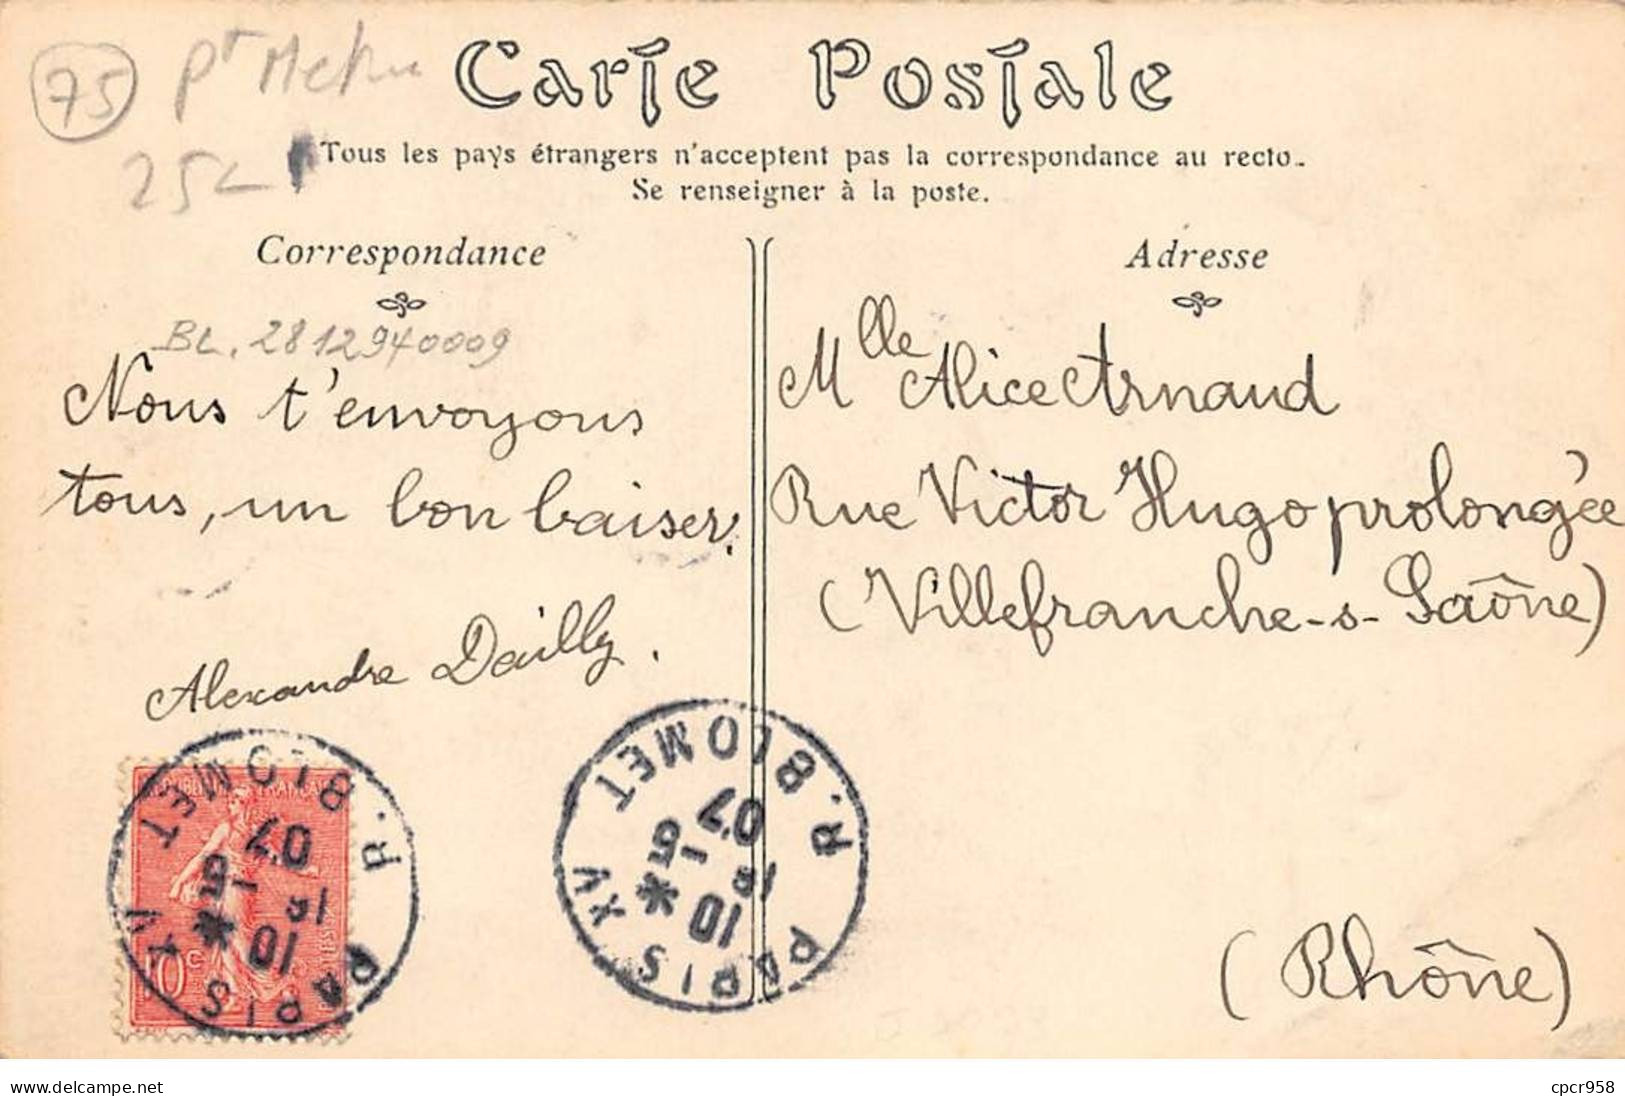 75
25
Carte Postale
Tous les pays étrangers n'acceptent pas la correspondance au recto.
Se renseigner à la poste.
Correspondance
BL. 2812940009
Nous t'envoyons
tous, un bon baiser.
Alexandre Dailly.
Adresse
Mlle Alice Arnaud
Rue Victor Hugo prolongée
(Villefranche-s-Saône)
(Rhône)
PARIS XV R. BLOMET
10 * 
15 -5
07
PARIS XV R. BLOMET
10 *
15 -5
07
10c
www.delcampe.net
cpcr958